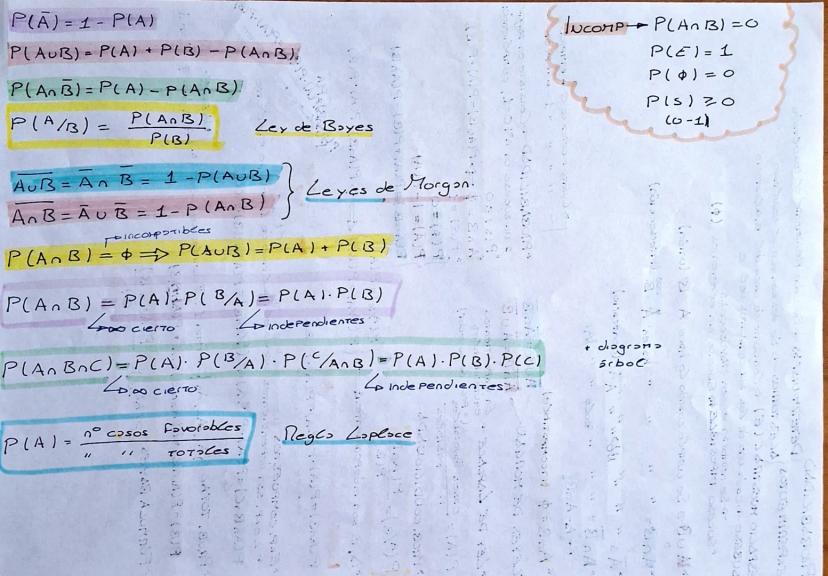 P(Ā) = 1 - P(A)
P(A∪B) = P(A) + P(B) - P(A∩B)
P(A∩B̄) = P(A) - P(A∩B)
P(A/B) = P(A∩B) / P(B) Ley de Bayes
A̅∪̅B̅ = Ā ∩ B̄ = 1 - P(A∪B)
A̅∩̅B̅ = Ā ∪ B̄ = 1 - P(A∩B)
Leyes de Morgan.
incompatibles
P(A∩B) = ϕ ⇒ P(A∪B) = P(A) + P(B)
P(A∩B) = P(A)·P(B/A) = P(A)·P(B)
∞ cierto independientes
P(A∩B∩C) = P(A)·P(B/A)·P(C/A∩B) = P(A)·P(B)·P(C)
∞ cierto independientes
+ diagrama
árbol
P(A) = nº casos favorables / " " totales Regla Laplace
INCOMP → P(A∩B) = 0
P(E) = 1
P(ϕ) = 0
P(S) ≥ 0
(0-1)